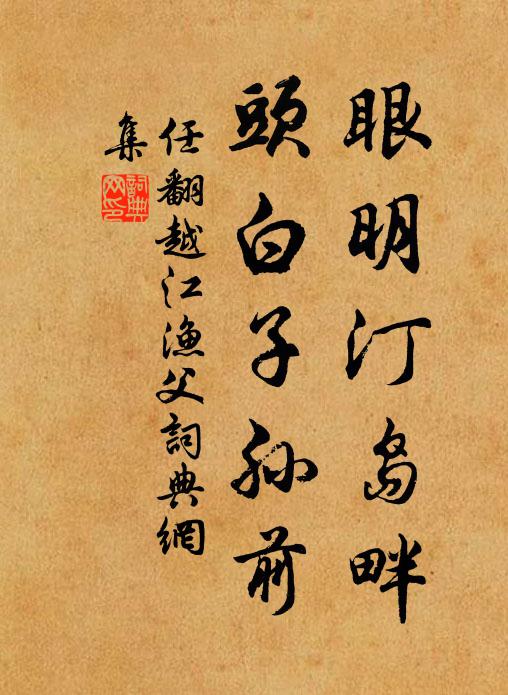 眼明汀島畔
頭白子孫前
任翻越江漁父詞典網
集
詞典网印